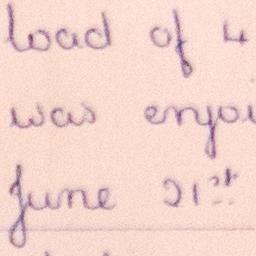 load of 4
was enjoy
June 21st